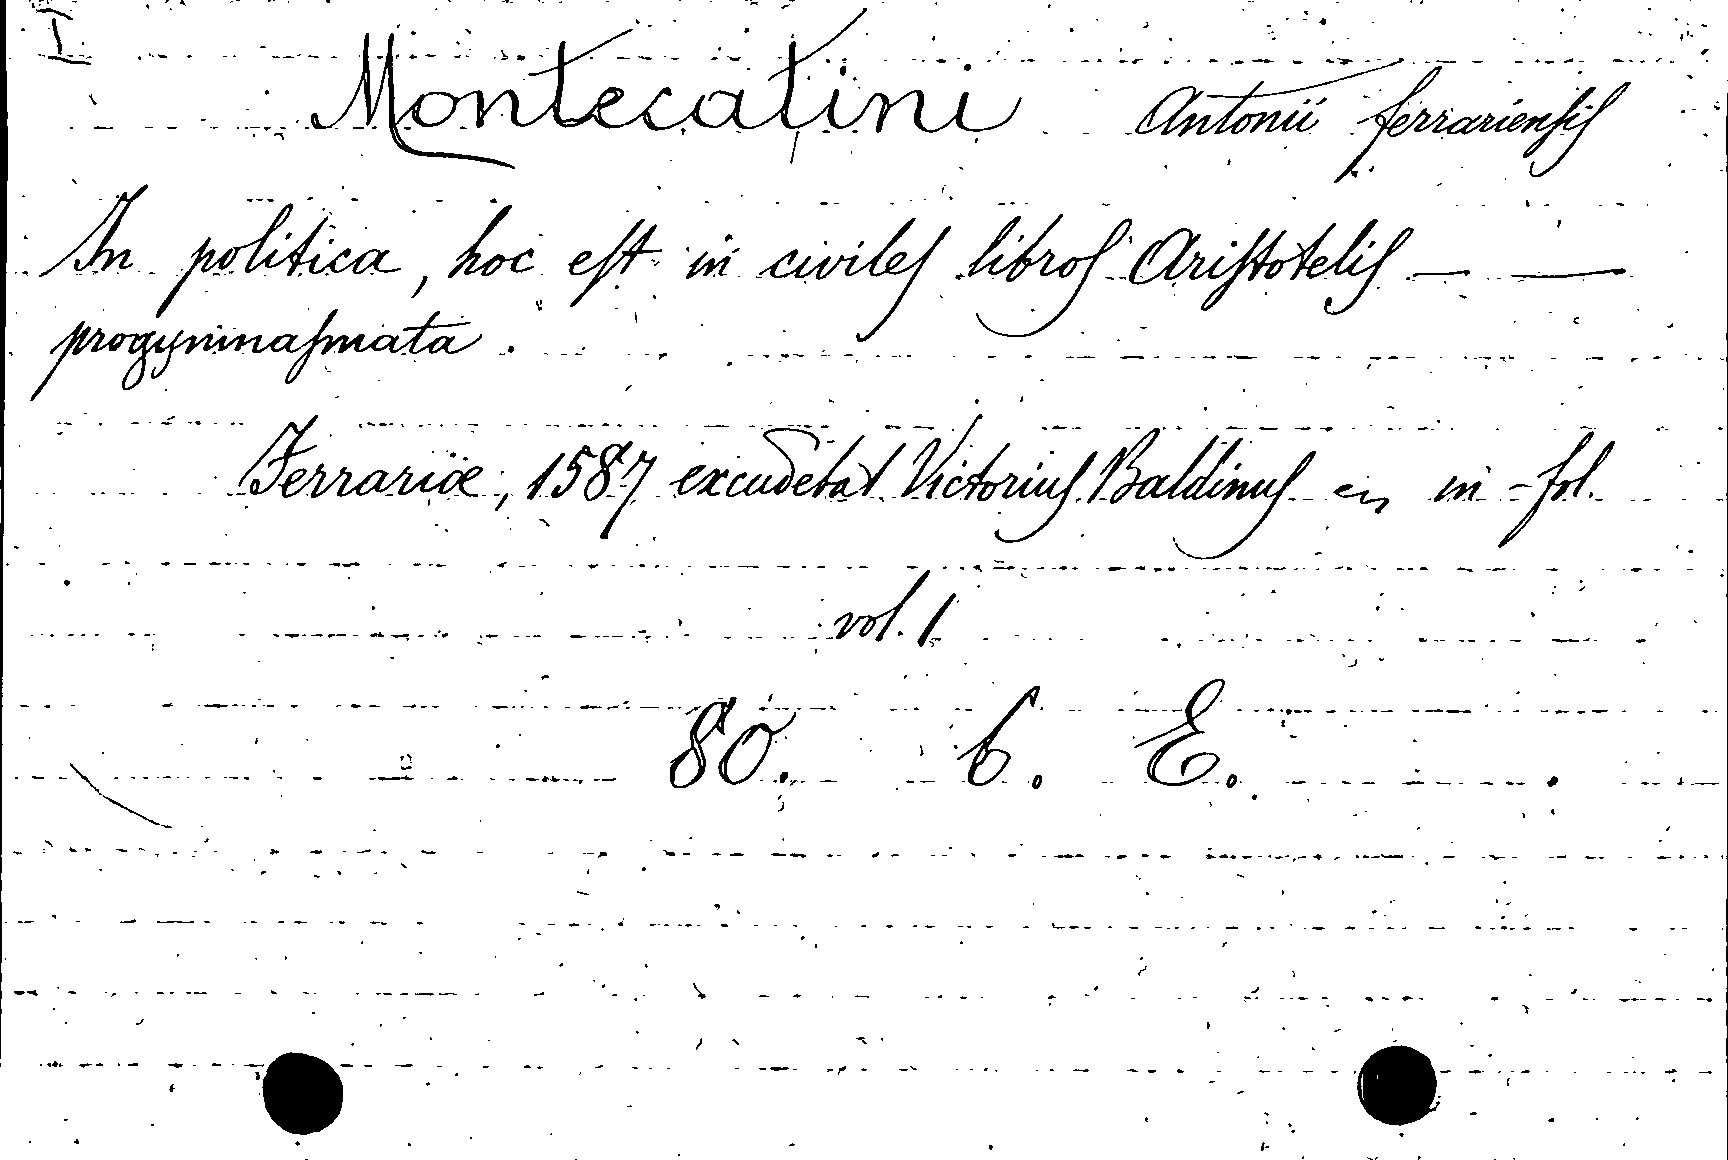 I
Montecatini Antonii ferrariensis
In politica, hoc est in civiles libros Aristotelis — —
progymnasmata.
Ferrariæ, 1587 excudebat Victorius Baldinus en in-fol.
vol. 1
80. 6. E.